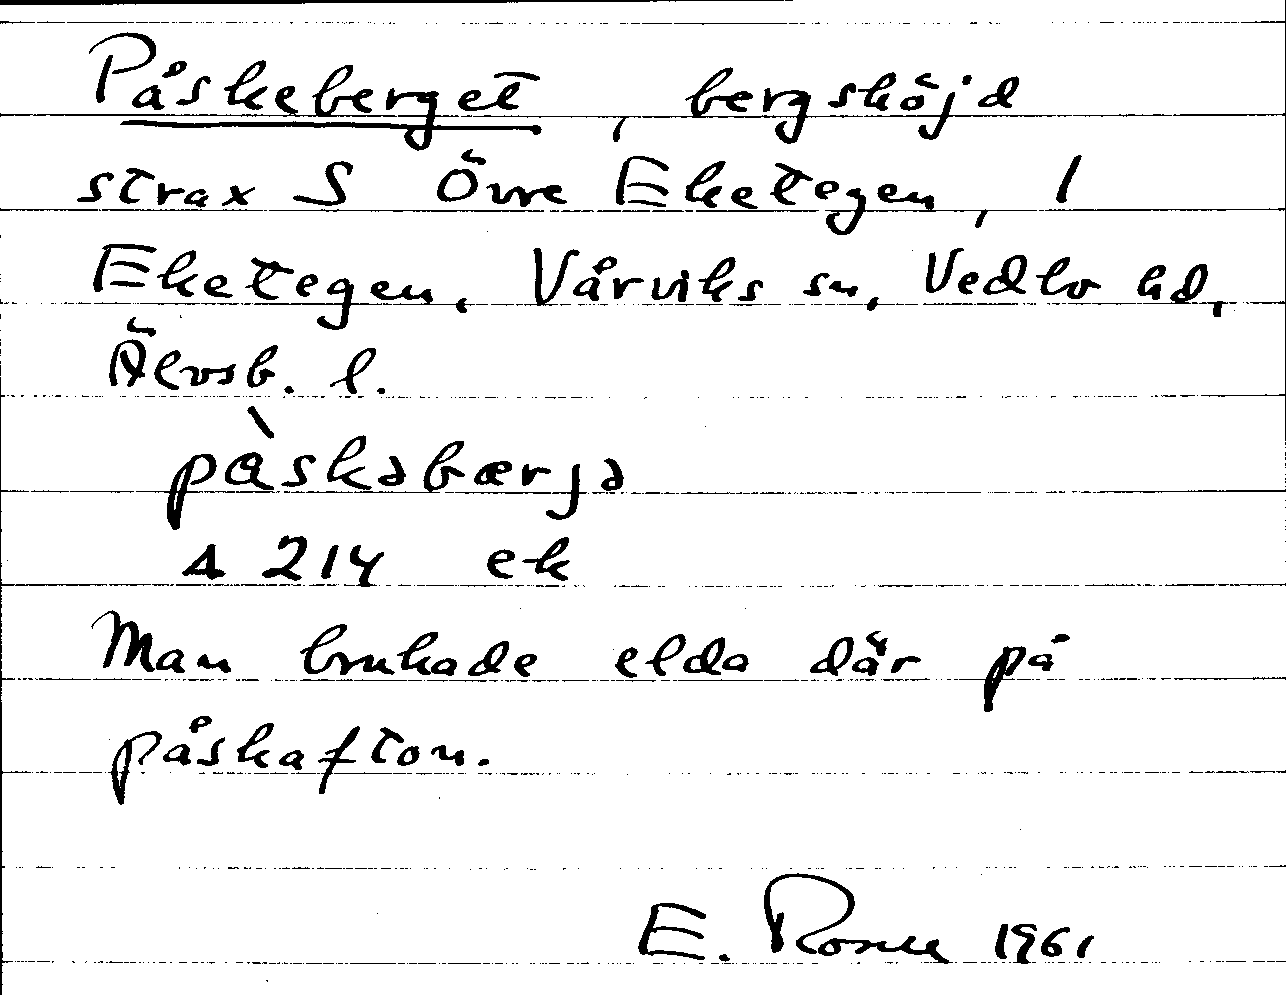 Påskeberget, bergshöjd
strax S Övre Eketegen, 1
Eketegen, Vårviks sn, Vedbo hd,
Älvsb. l.
pàskəbærjə
4 214 ek
Man brukade elda där på
påskafton.
E. Rosell 1961